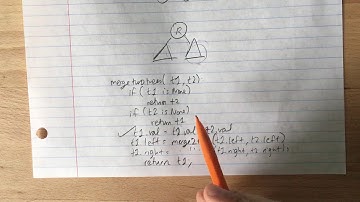 R
mergetwotrees(t1, t2)
if (t1 is None)
return t2
if (t2 is None)
return t1
t1.val = t1.val t2.val
t1.left = merge2 (t1.left, t2.left)
t1.right = " " " (t1.right, t2.right)
return t1